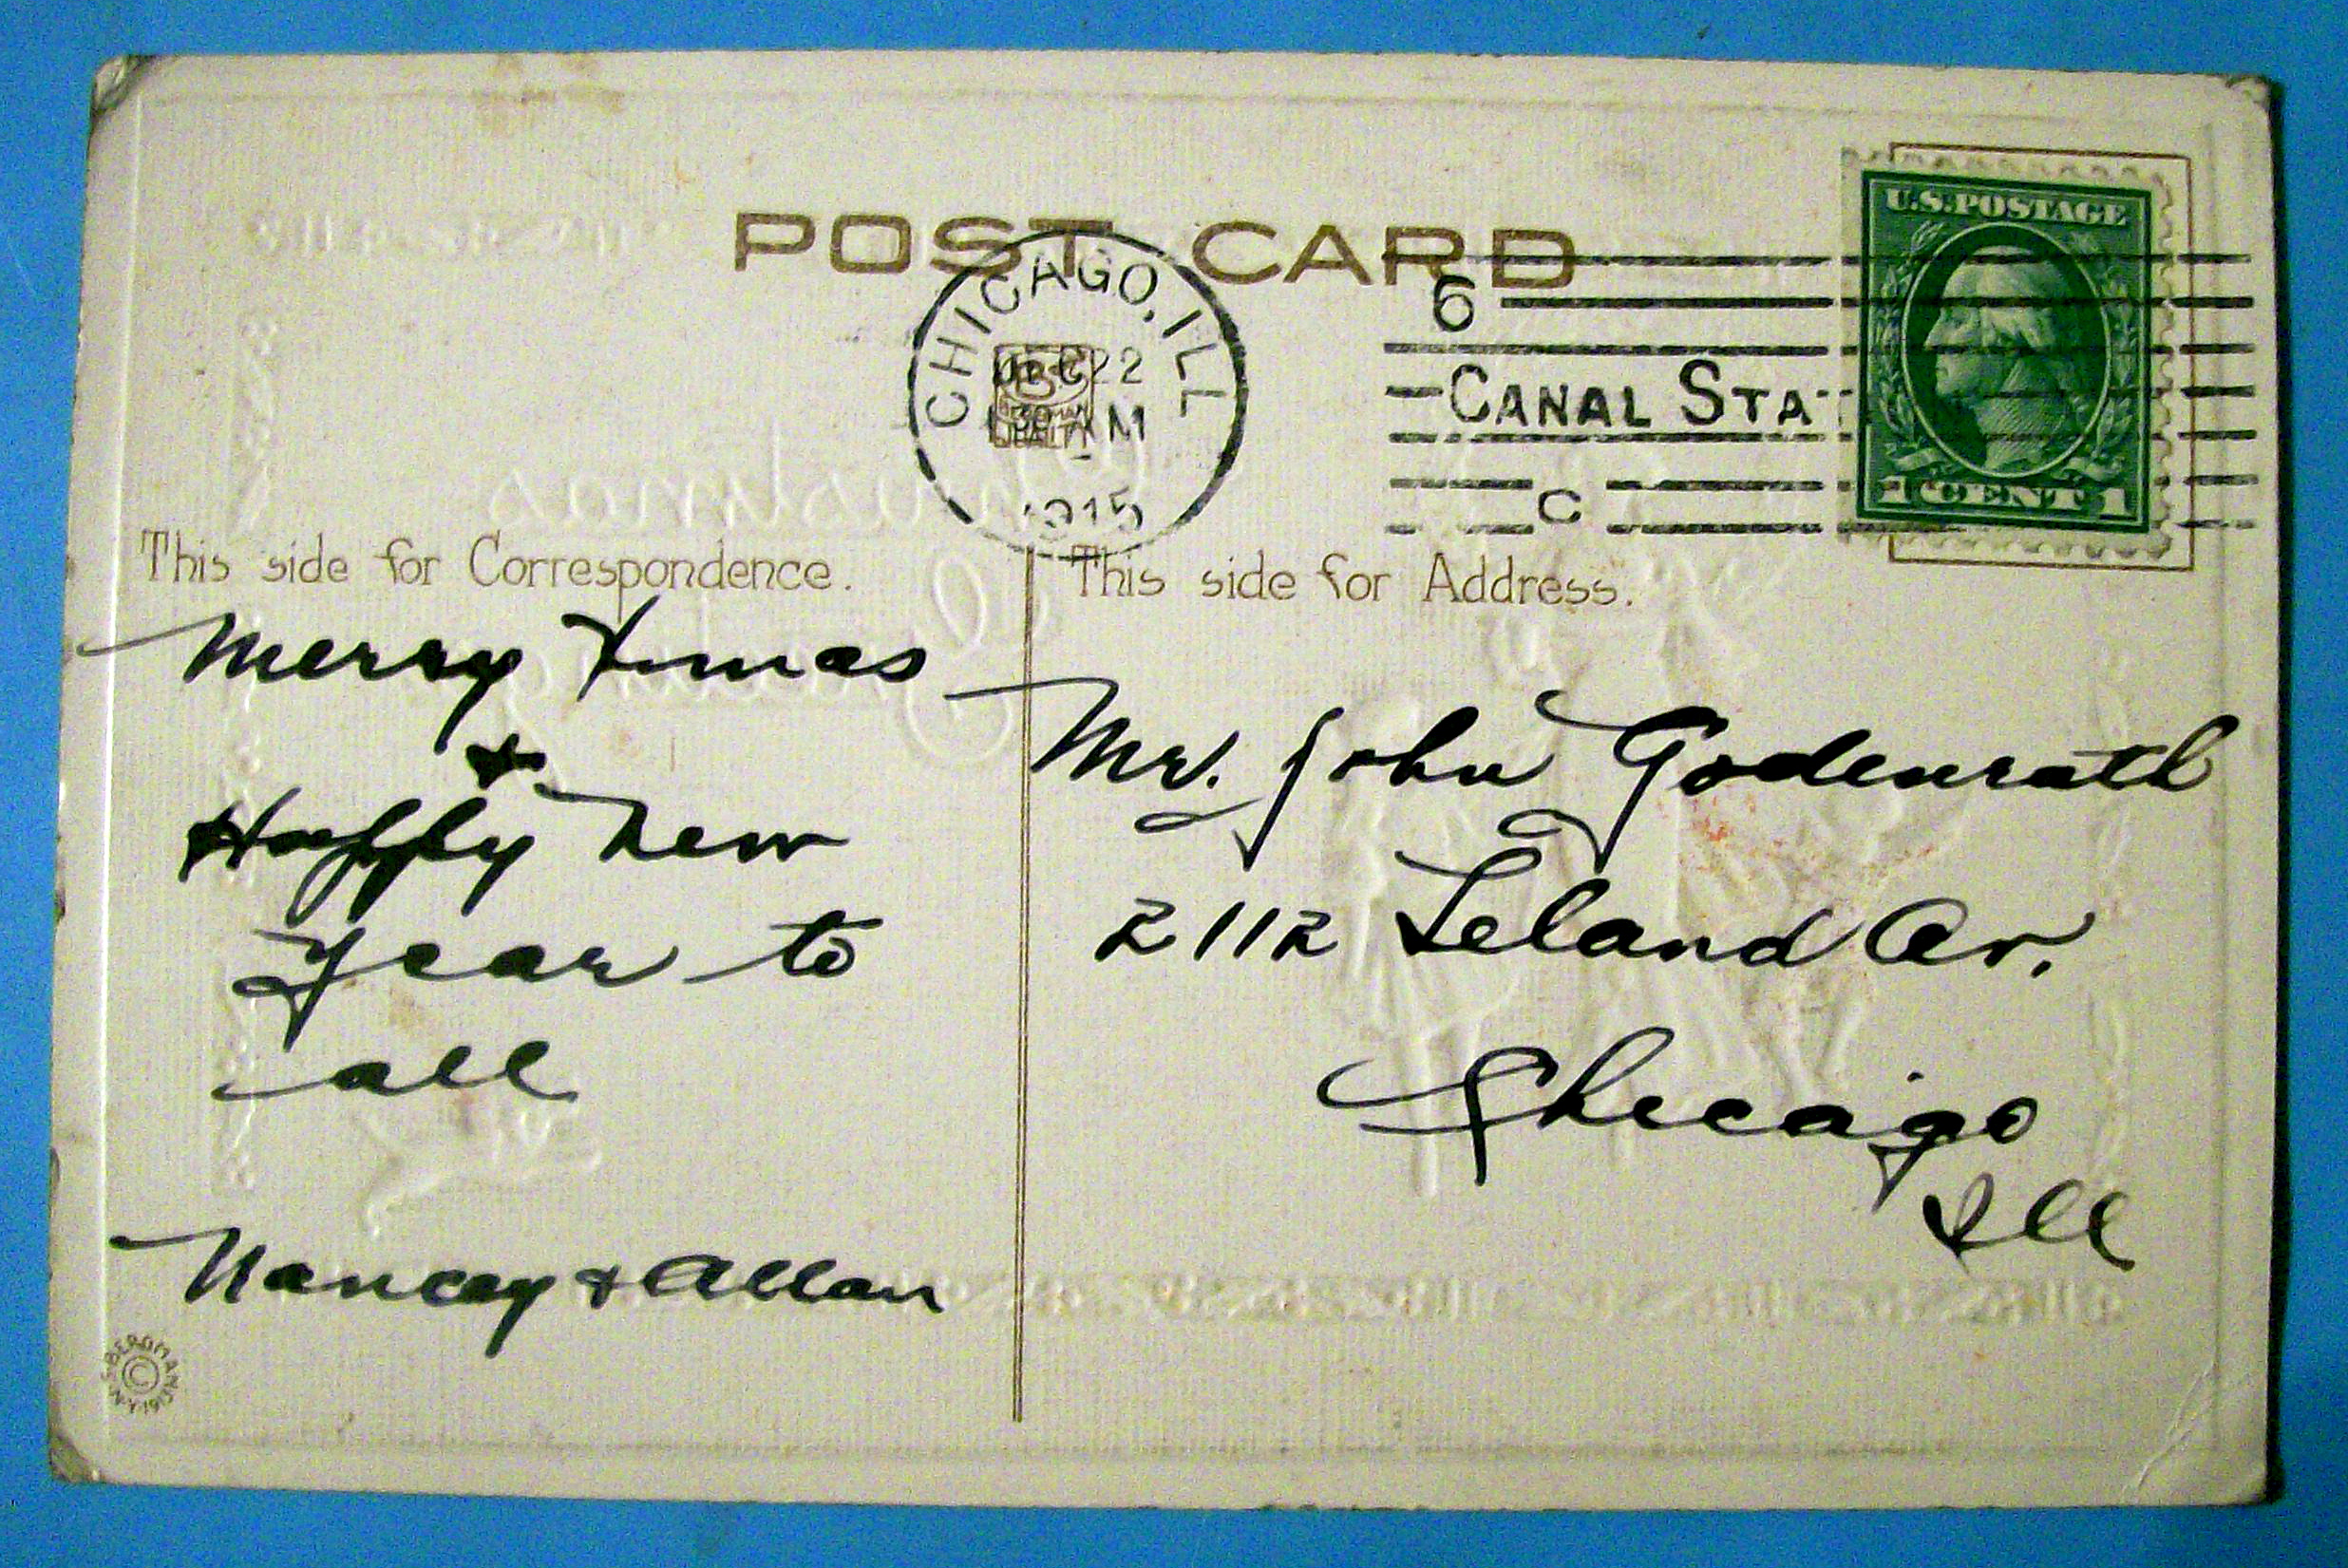 POST CARD
U.S. POSTAGE
1 CENT 1
CHICAGO, ILL
DEC 22
1915
6
CANAL STA
C
This side for Correspondence.
This side for Address.
Merry Xmas
+
Happy New
Year to
all
Nancy + Allan
Mr. John Godenrath
2112 Leland Av.
Chicago
Ill
© S. BERGMAN N.Y.